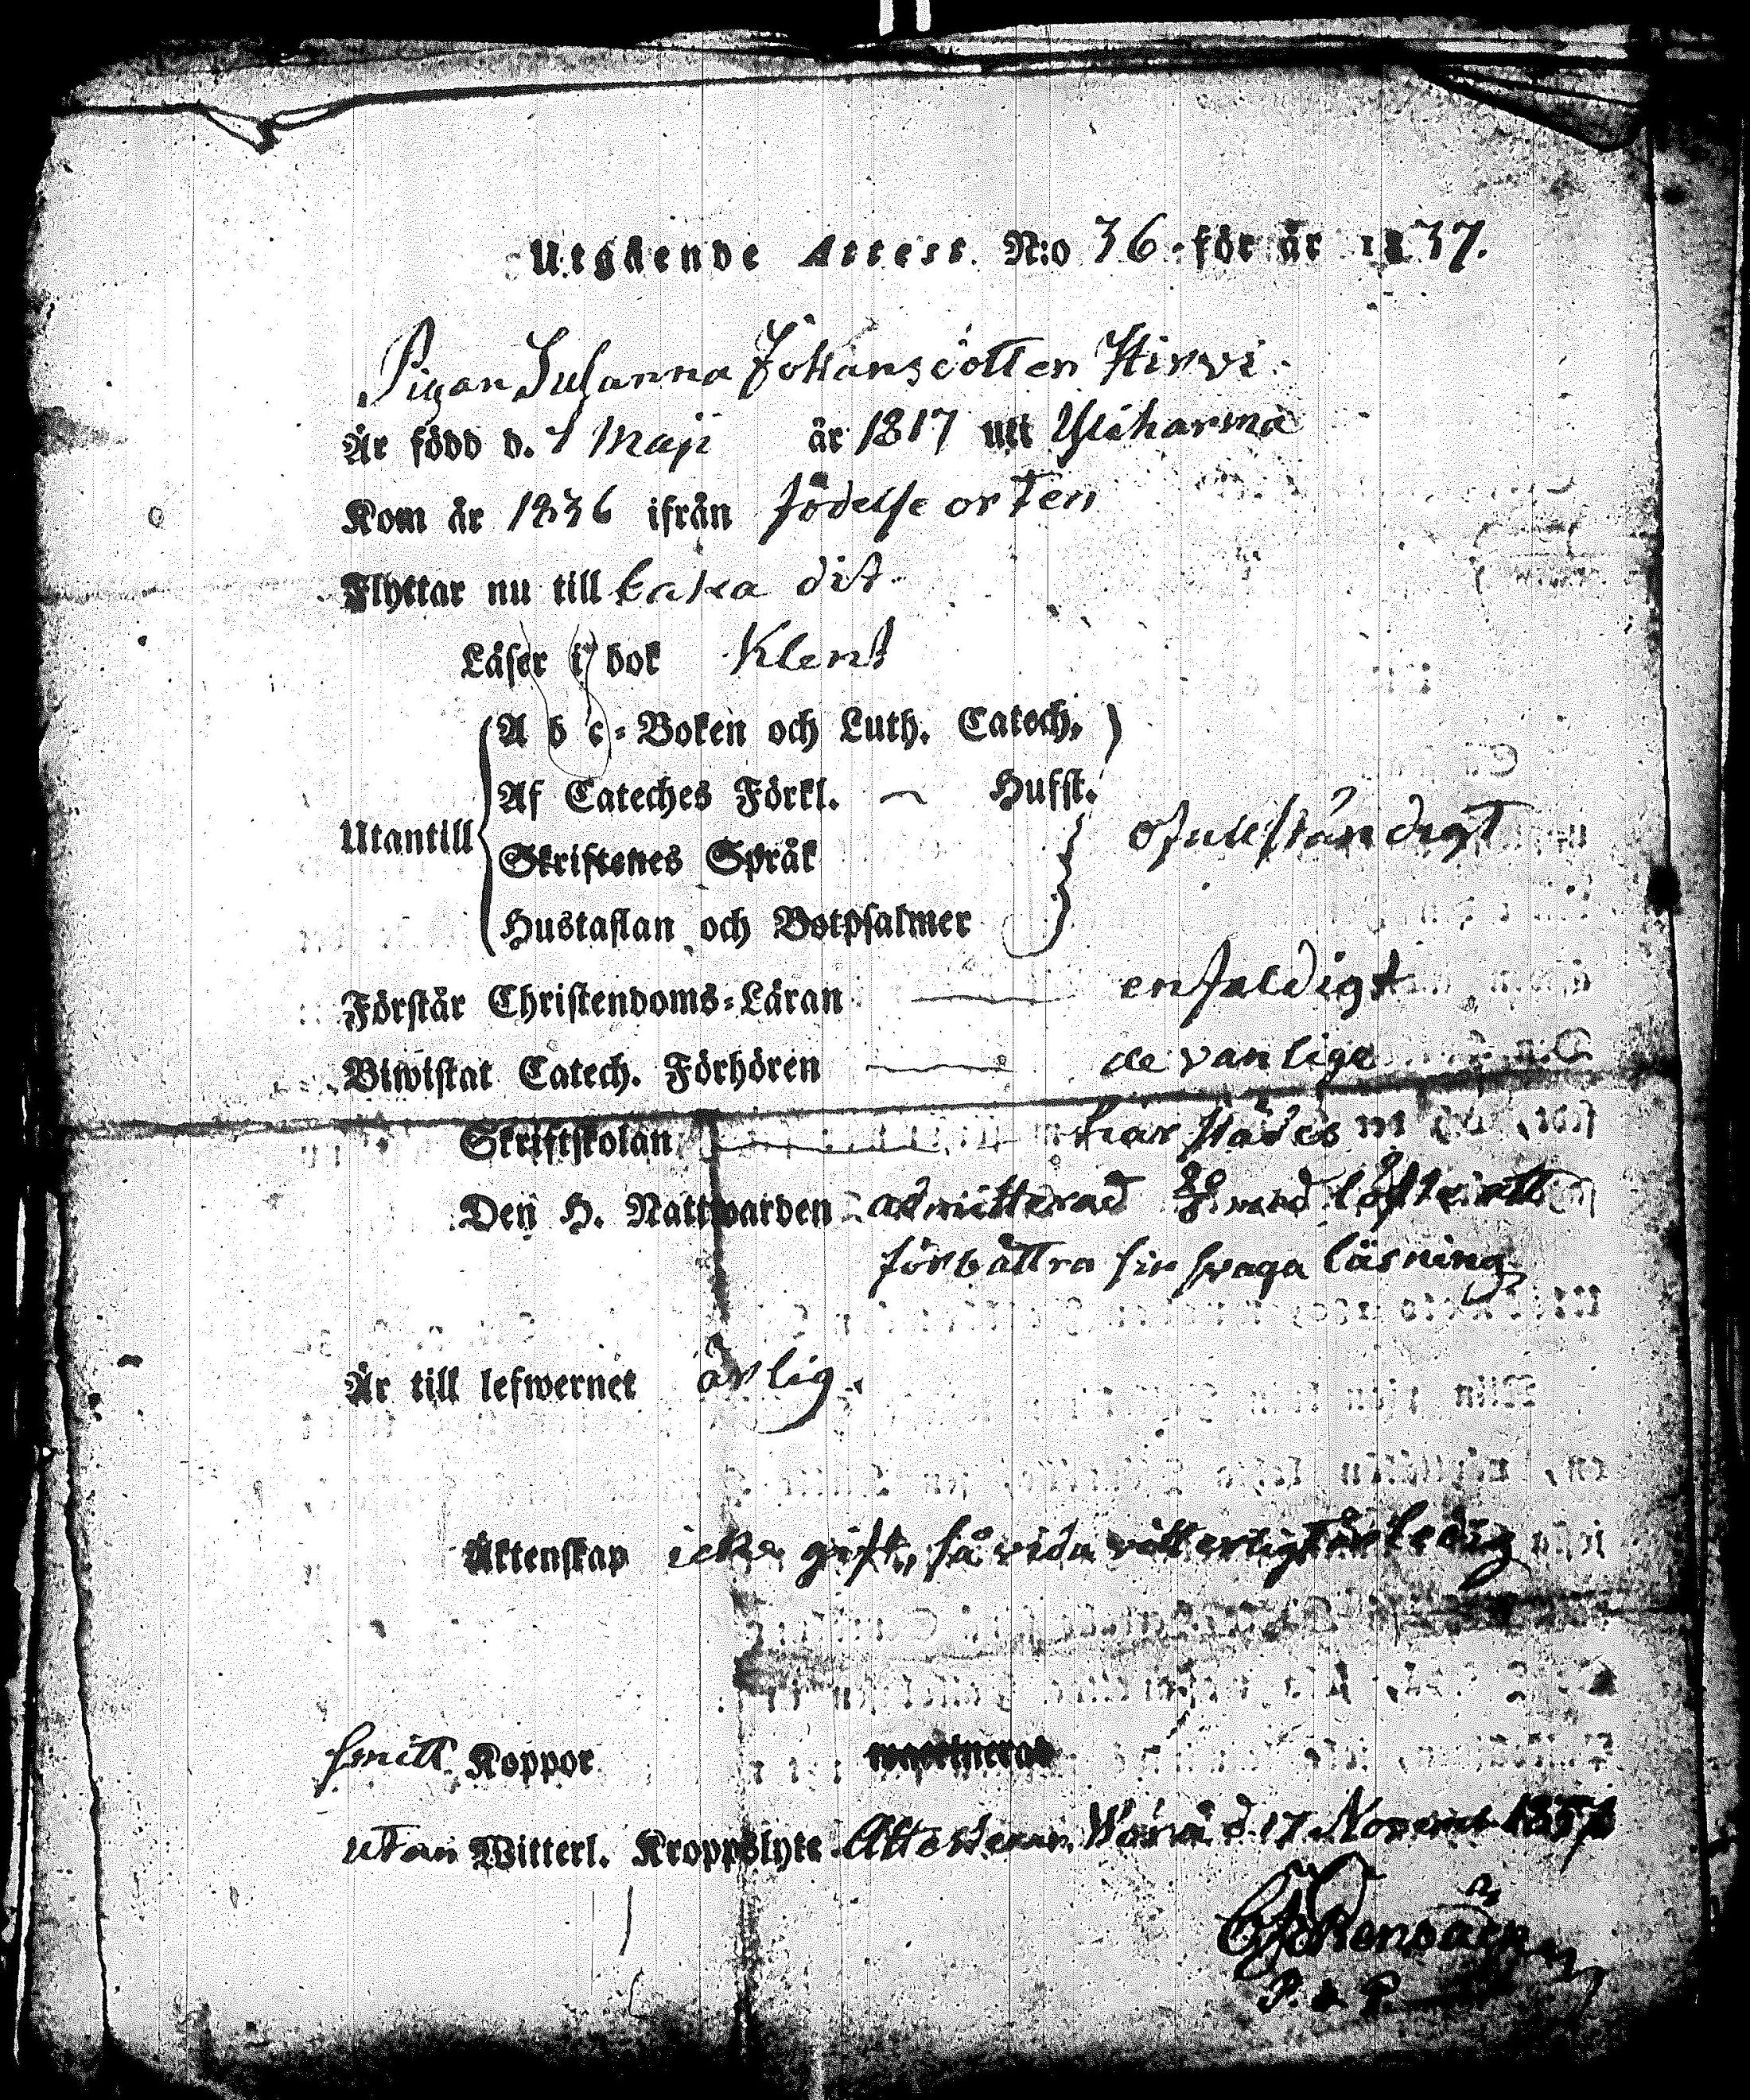 Utgående Attest N:o 36 för år 1837.
Pigan Susanna Johansdotter Hirvi.
Är född d. 1 Maji år 1817 uti Ylihärmä
Kom år 1836 ifrån födelse orten
Flyttar nu till baka dit
Läser i bok Klent
A b c-Boken och Luth. Catech.
Af Cateches Förkl. Hufst.
Utantill ofullständigt
Skriftenes Språk
Hustaflan och Botpsalmer
Förstår Christendoms-Läran enfaldigt
Biwistat Catech. Förhören de vanliga
Skriftskolan härstädes
Den H. Nattwarden admitterad med löfte att
förbättra sin swaga läsning
Är till lefwernet ärlig.
Äktenskap icke gift, så vida vitterligt är ledig
haft Koppor
utan Witterl. Kroppslyte Attesterar, d. 17 Novemb. 1837